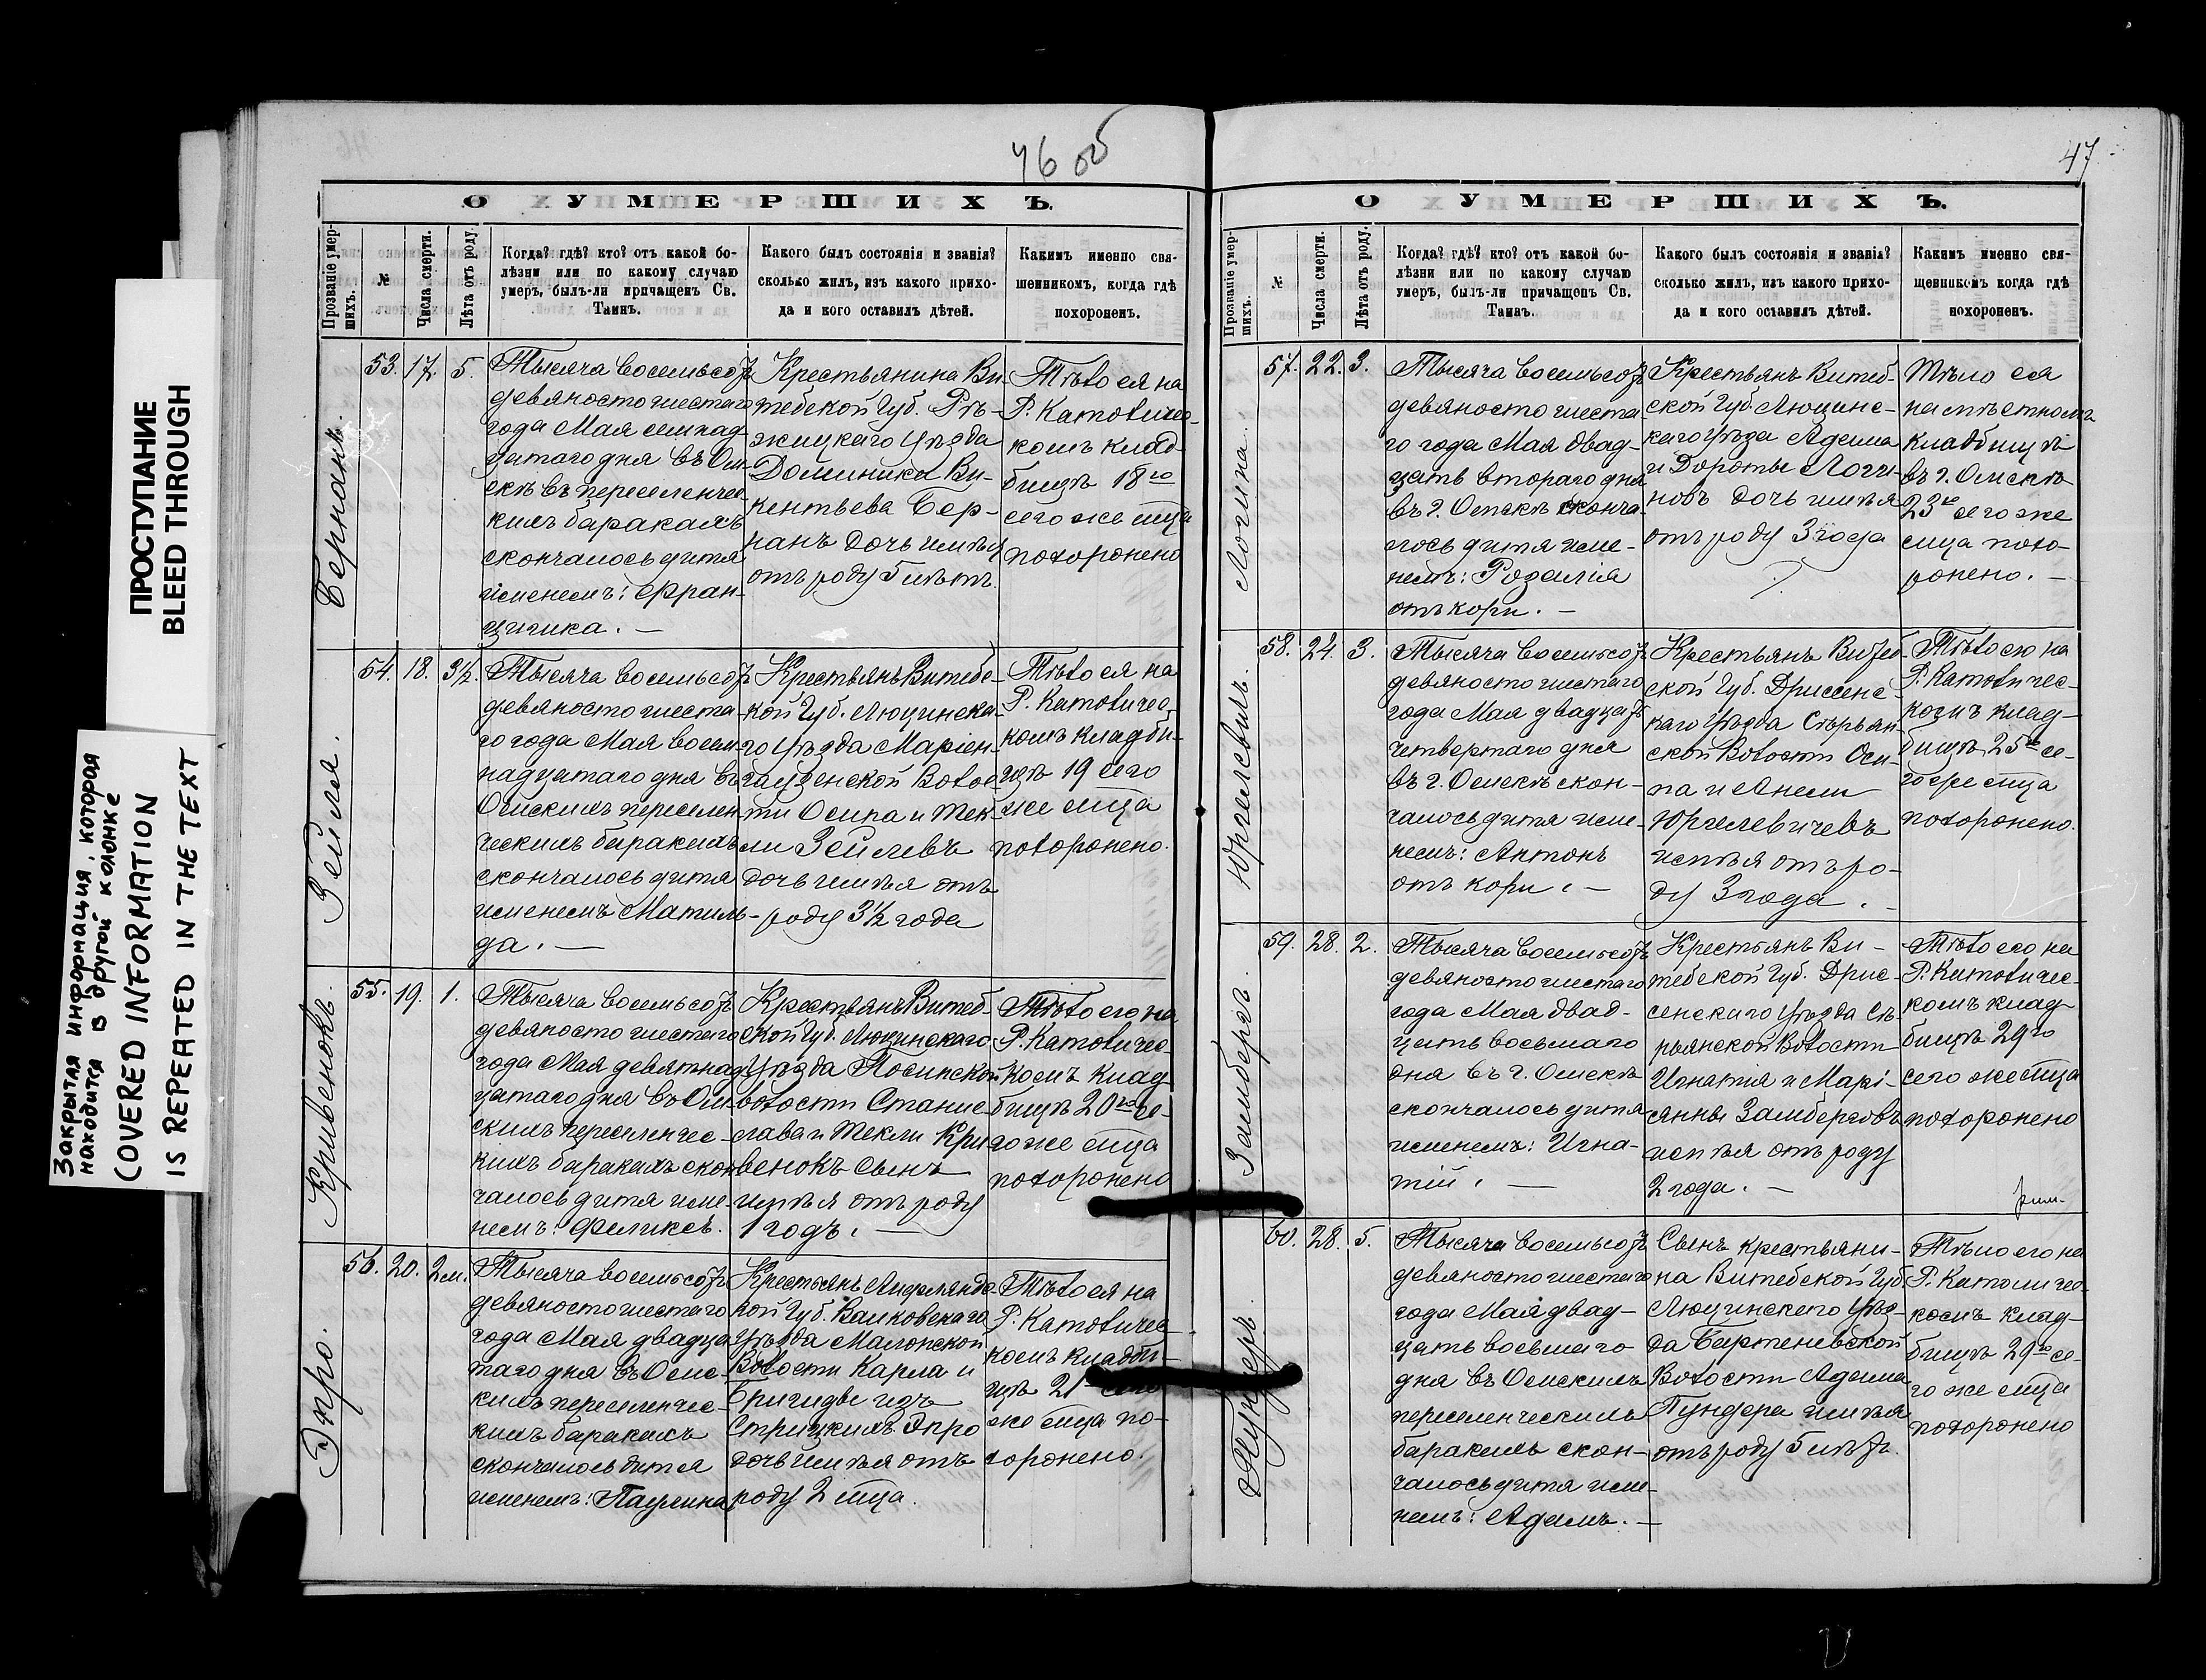 46 об
О УМЕРШИХЪ.
Прозваніе умер-
шихъ.
№
Числа смерти.
Лѣта отъ роду.
Когда? гдѣ? кто? отъ какой бо-
лѣзни или по какому случаю
умеръ, былъ-ли причащенъ Св.
Таинъ.
Какого былъ состоянія и званія?
сколько жилъ, изъ какого прихо-
да и кого оставилъ дѣтей.
Какимъ именно свя-
щенникомъ, когда гдѣ
похороненъ.
Бернанъ.
53. 17. 5.
Тысяча восемьсотъ
девяносто шестаго
года Мая семнад-
цатаго дня въ Ом-
скѣ въ переселенчес-
кихъ баракахъ
скончалось дитя
именемъ: Фран-
цишка. —
Крестьянина Ви-
тебской Губ. Рѣ-
жицкаго Уѣзда
Доминика Ви-
кентьева Бер-
нанъ дочь имѣя
отъ роду 5 лѣтъ.
Тѣло ея на
Р. Католичес-
комъ клад-
бищѣ 18го
сего же м-ца
похоронено
Зейля.
54. 18. 3½.
Тысяча восемьсотъ
девяносто шеста-
го года Мая восем-
надцатаго дня въ
Омскихъ переселен-
ческихъ баракахъ
скончалось дитя
именемъ Матиль-
да. —
Крестьянъ Витебс-
кой Губ. Люцинска-
го Уѣзда Маріен-
гаузенской Волос-
ти Осипа и Тек-
ли Зейлевъ
дочь имѣя отъ
роду 3½ года
Тѣло ея на
Р. Католичес-
комъ кладби-
щѣ 19 сего
же м-ца
похоронено.
Кривенокъ.
55. 19. 1.
Тысяча восемьсотъ
девяносто шестаго
года Мая девятнад-
цатаго дня въ Ом-
скихъ переселенчес-
кихъ баракахъ скон-
чалось дитя име-
немъ: Феликсъ.
Крестьянъ Витеб-
ской Губ. Люцинскаго
Уѣзда Посинской
волости Станис-
лава и Текли Кри-
венокъ сынъ
имѣя отъ роду
1 годъ. —
Тѣло его на
Р. Католичес-
комъ клад-
бищѣ 20го се-
го же м-ца
похоронено
Эпро.
56. 20. 2 м.
Тысяча восемьсотъ
девяносто шестаго
года Мая двадца-
таго дня въ Омс-
кихъ переселенчес-
кихъ баракахъ
скончалось дитя
именемъ: Паулина
Крестьянъ Лифляндс-
кой Губ. Валковскаго
Уѣзда Малонской
Волости Карла и
Бригиды изъ
Стрицкихъ Эпро
дочь имѣя отъ
роду 2 м-ца.
Тѣло ея на
Р. Католичес-
комъ кладби-
щѣ 21 сего
же м-ца по-
хоронено.
47
О УМЕРШИХЪ.
Прозваніе умер-
шихъ.
№
Числа смерти.
Лѣта отъ роду.
Когда? гдѣ? кто? отъ какой бо-
лѣзни или по какому случаю
умеръ, былъ-ли причащенъ Св.
Таинъ.
Какого былъ состоянія и званія?
сколько жилъ, изъ какого прихо-
да и кого оставилъ дѣтей.
Какимъ именно свя-
щенникомъ когда гдѣ
похороненъ.
Логина.
57. 22. 3.
Тысяча восемьсотъ
девяносто шеста-
го года Мая двад-
цать втораго дня
въ г. Омскѣ сконча-
лось дитя име-
немъ: Розалія
отъ кори. —
Крестьянъ Витеб-
ской Губ. Люцинс-
каго Уѣзда Адама
и Дороты Логи-
новъ дочь имѣя
отъ роду 3 года
Тѣло ея
на мѣстномъ
кладбищѣ
въ г. Омскѣ
23го сего же
м-ца похо-
ронено. —
Юргилевичъ.
58. 24. 3.
Тысяча восемьсотъ
девяносто шестаго
года Мая двадцать
четвертаго дня
въ г. Омскѣ скон-
чалось дитя име-
немъ: Антонъ
отъ кори. —
Крестьянъ Витеб-
ской Губ. Дриссенс-
каго Уѣзда Сѣрьян-
ской Волости Оси-
па и Анели
Юргилевичевъ
имѣя отъ ро-
ду 3 года. —
Тѣло его на
Р. Католичес-
комъ клад-
бищѣ 25го се-
го же м-ца
похоронено.
Замбергъ.
59. 28. 2.
Тысяча восемьсотъ
девяносто шестаго
года Мая двад-
цать восьмаго
дня въ г. Омскѣ
скончалось дитя
именемъ: Игна-
тій. —
Крестьянъ Ви-
тебской Губ. Дрис-
сенскаго Уѣзда Сѣ-
рьянской Волости
Игнатія и Марі-
янны Замберговъ
имѣя отъ роду
2 года. —
Тѣло его на
Р. Католичес-
комъ клад-
бищѣ 29го
сего же м-ца
похоронено
рим.
Пундеръ.
60. 28. 5.
Тысяча восемьсотъ
девяносто шестаго
года Мая двад-
цать восьмаго
дня въ Омскихъ
переселенческихъ
баракахъ скон-
чалось дитя име-
немъ: Адамъ. —
Сынъ крестьяни-
на Витебской Губ.
Люцинскаго Уѣз-
да Бартеневской
Волости Адама
Пундера имѣя
отъ роду 5 лѣтъ.
Тѣло его на
Р. Католичес-
комъ клад-
бищѣ 29го се-
го же м-ца
похоронено
ПРОСТУПАНИЕ
BLEED THROUGH
Закрытая информация, которая
находится в другой колонке
COVERED INFORMATION
IS REPEATED IN THE TEXT